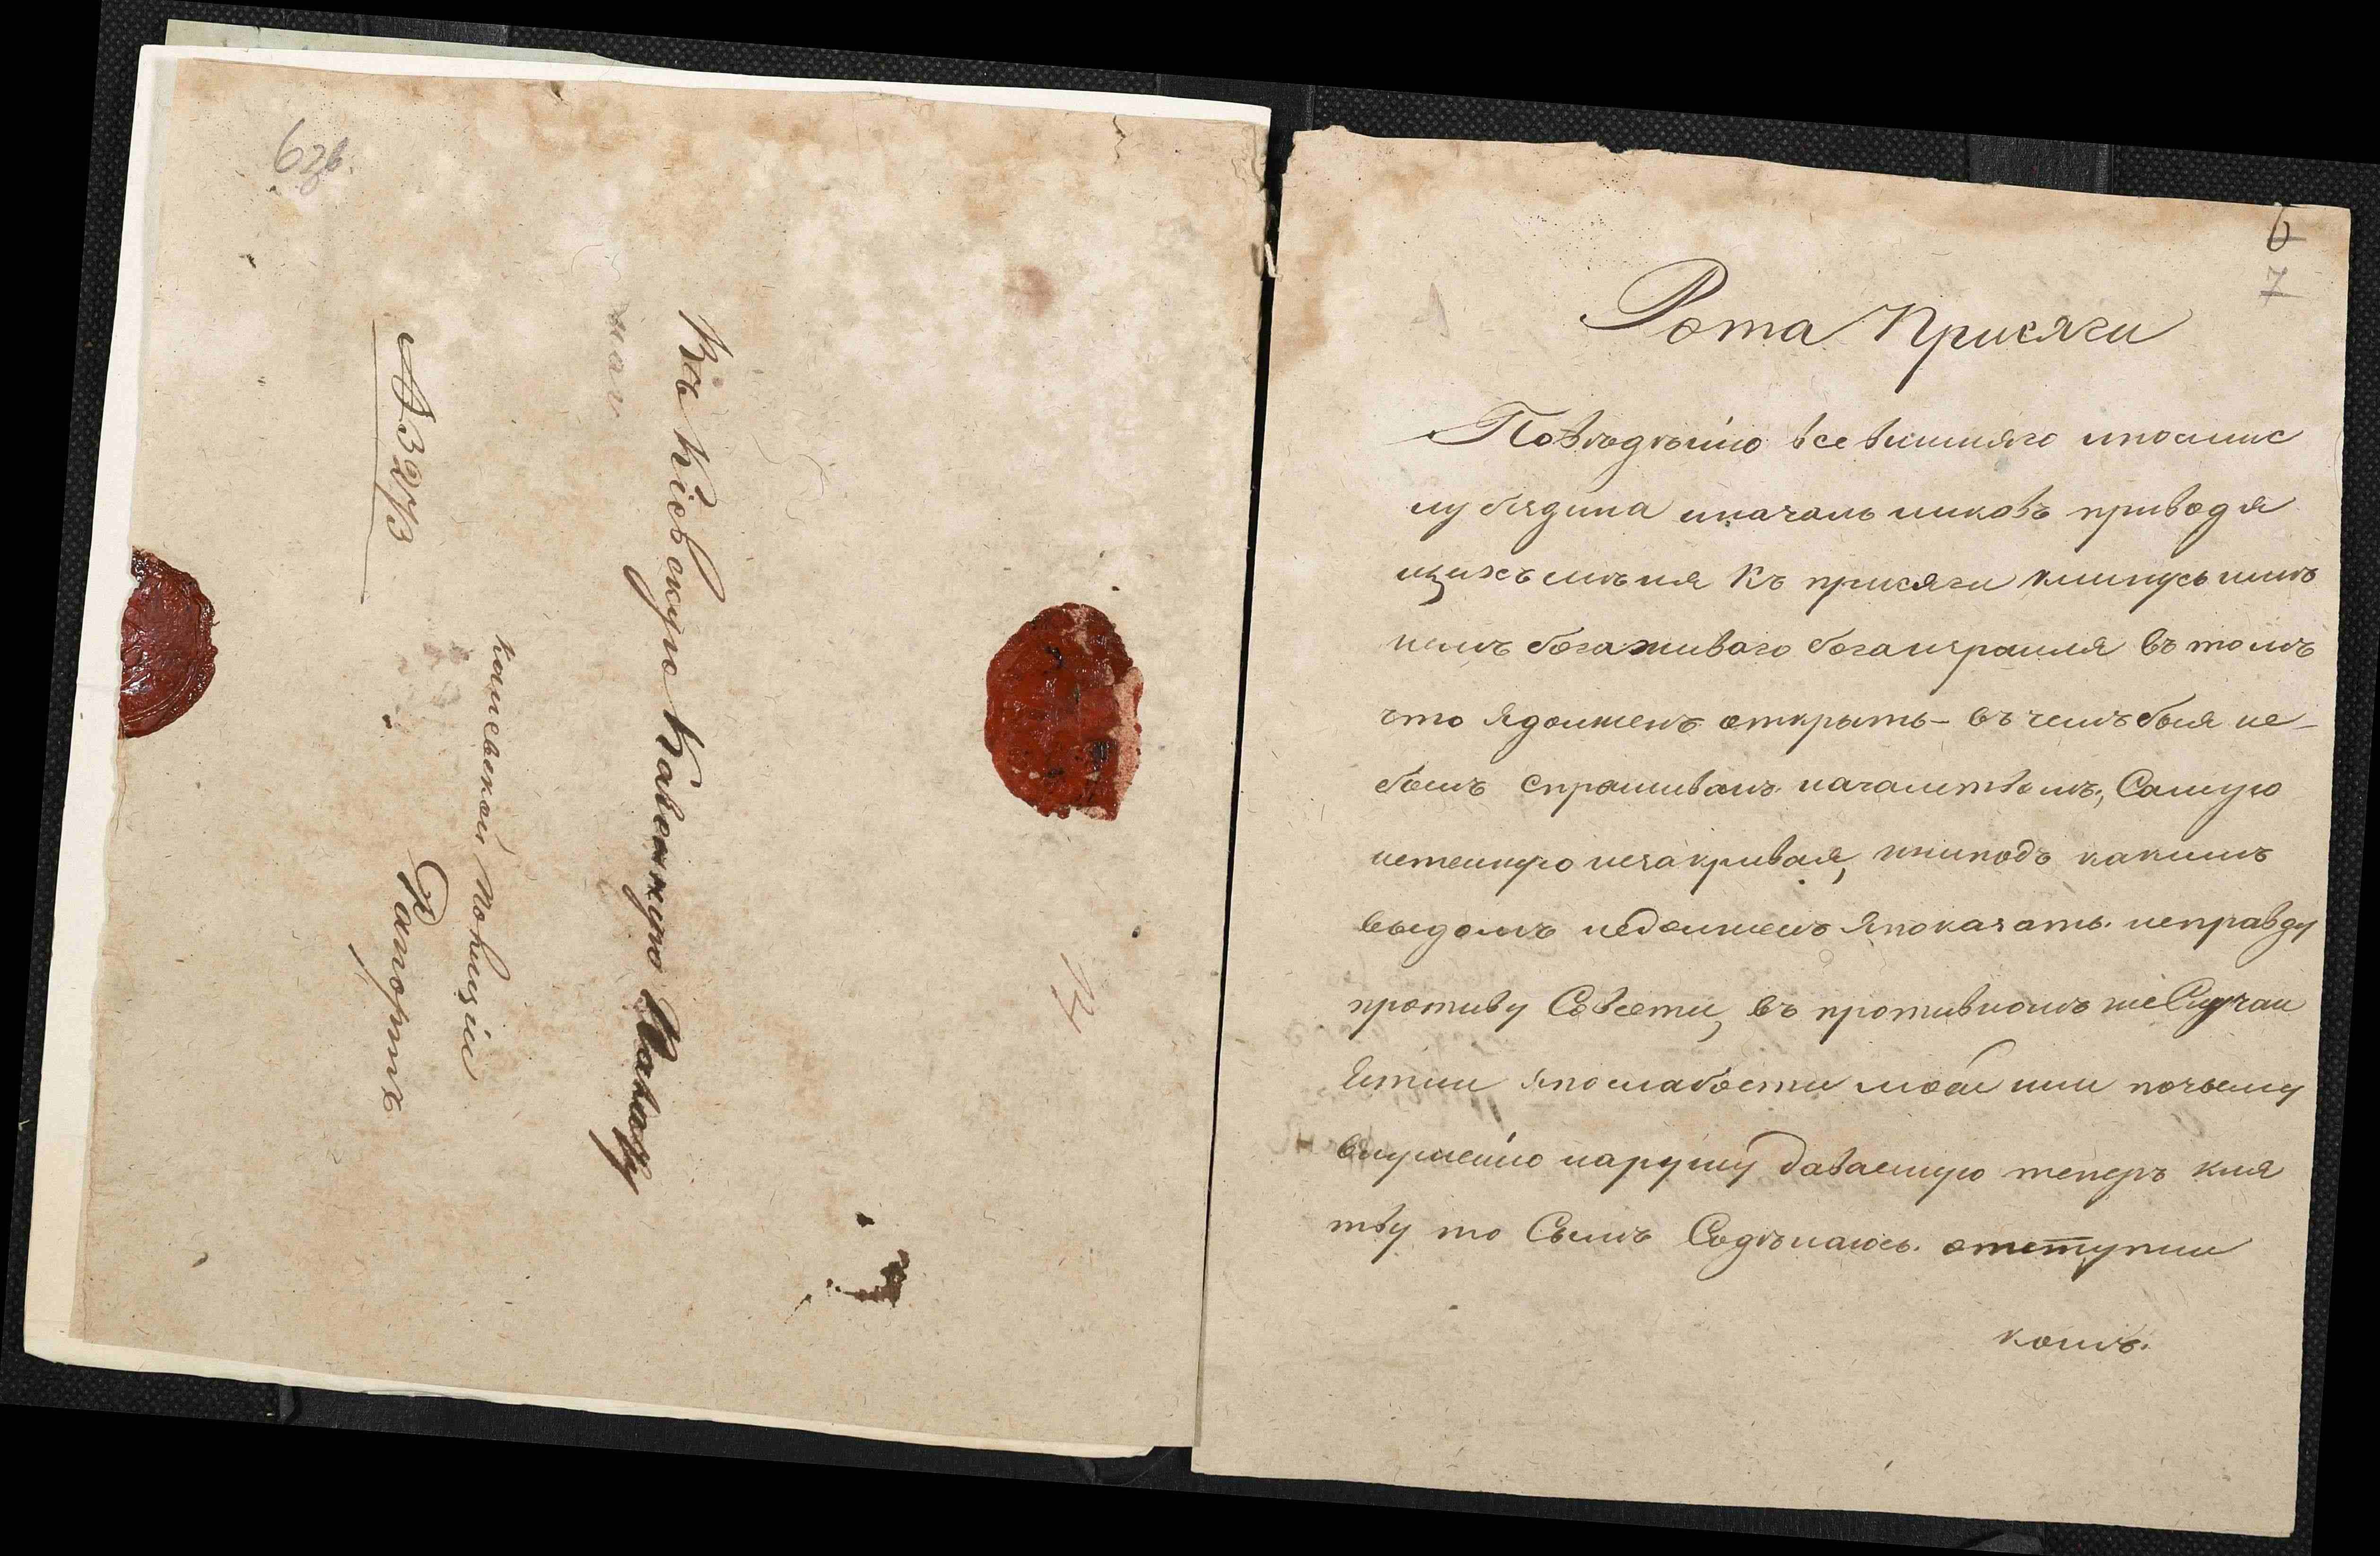 6зв.
Въ Кіевскую Казенную Палату
Каневской Полиціи
Рапортъ
№ 3273
6
7
Рота Присяги
Повѣдѣнію всевишняго ипосмис
лу бездина иначальниковъ приводя
щихъ мѣня Къ присяги клинусь имѣ
немъ бога живаго бога израиля въ томъ
что Ядолженъ открыть - въ чемъ быя не-
былъ спрашиванъ началствомъ, Самую
истенную незакривая, ниподъ какимъ
выдомъ недолженъ Япоказать неправду
противу Совести, въ противномъ же Случаи
Естли япослабости моей или почьему
внушенію нарушу даваемую теперъ кля
тву то Съимъ Содѣлаюсь отступни
комъ.